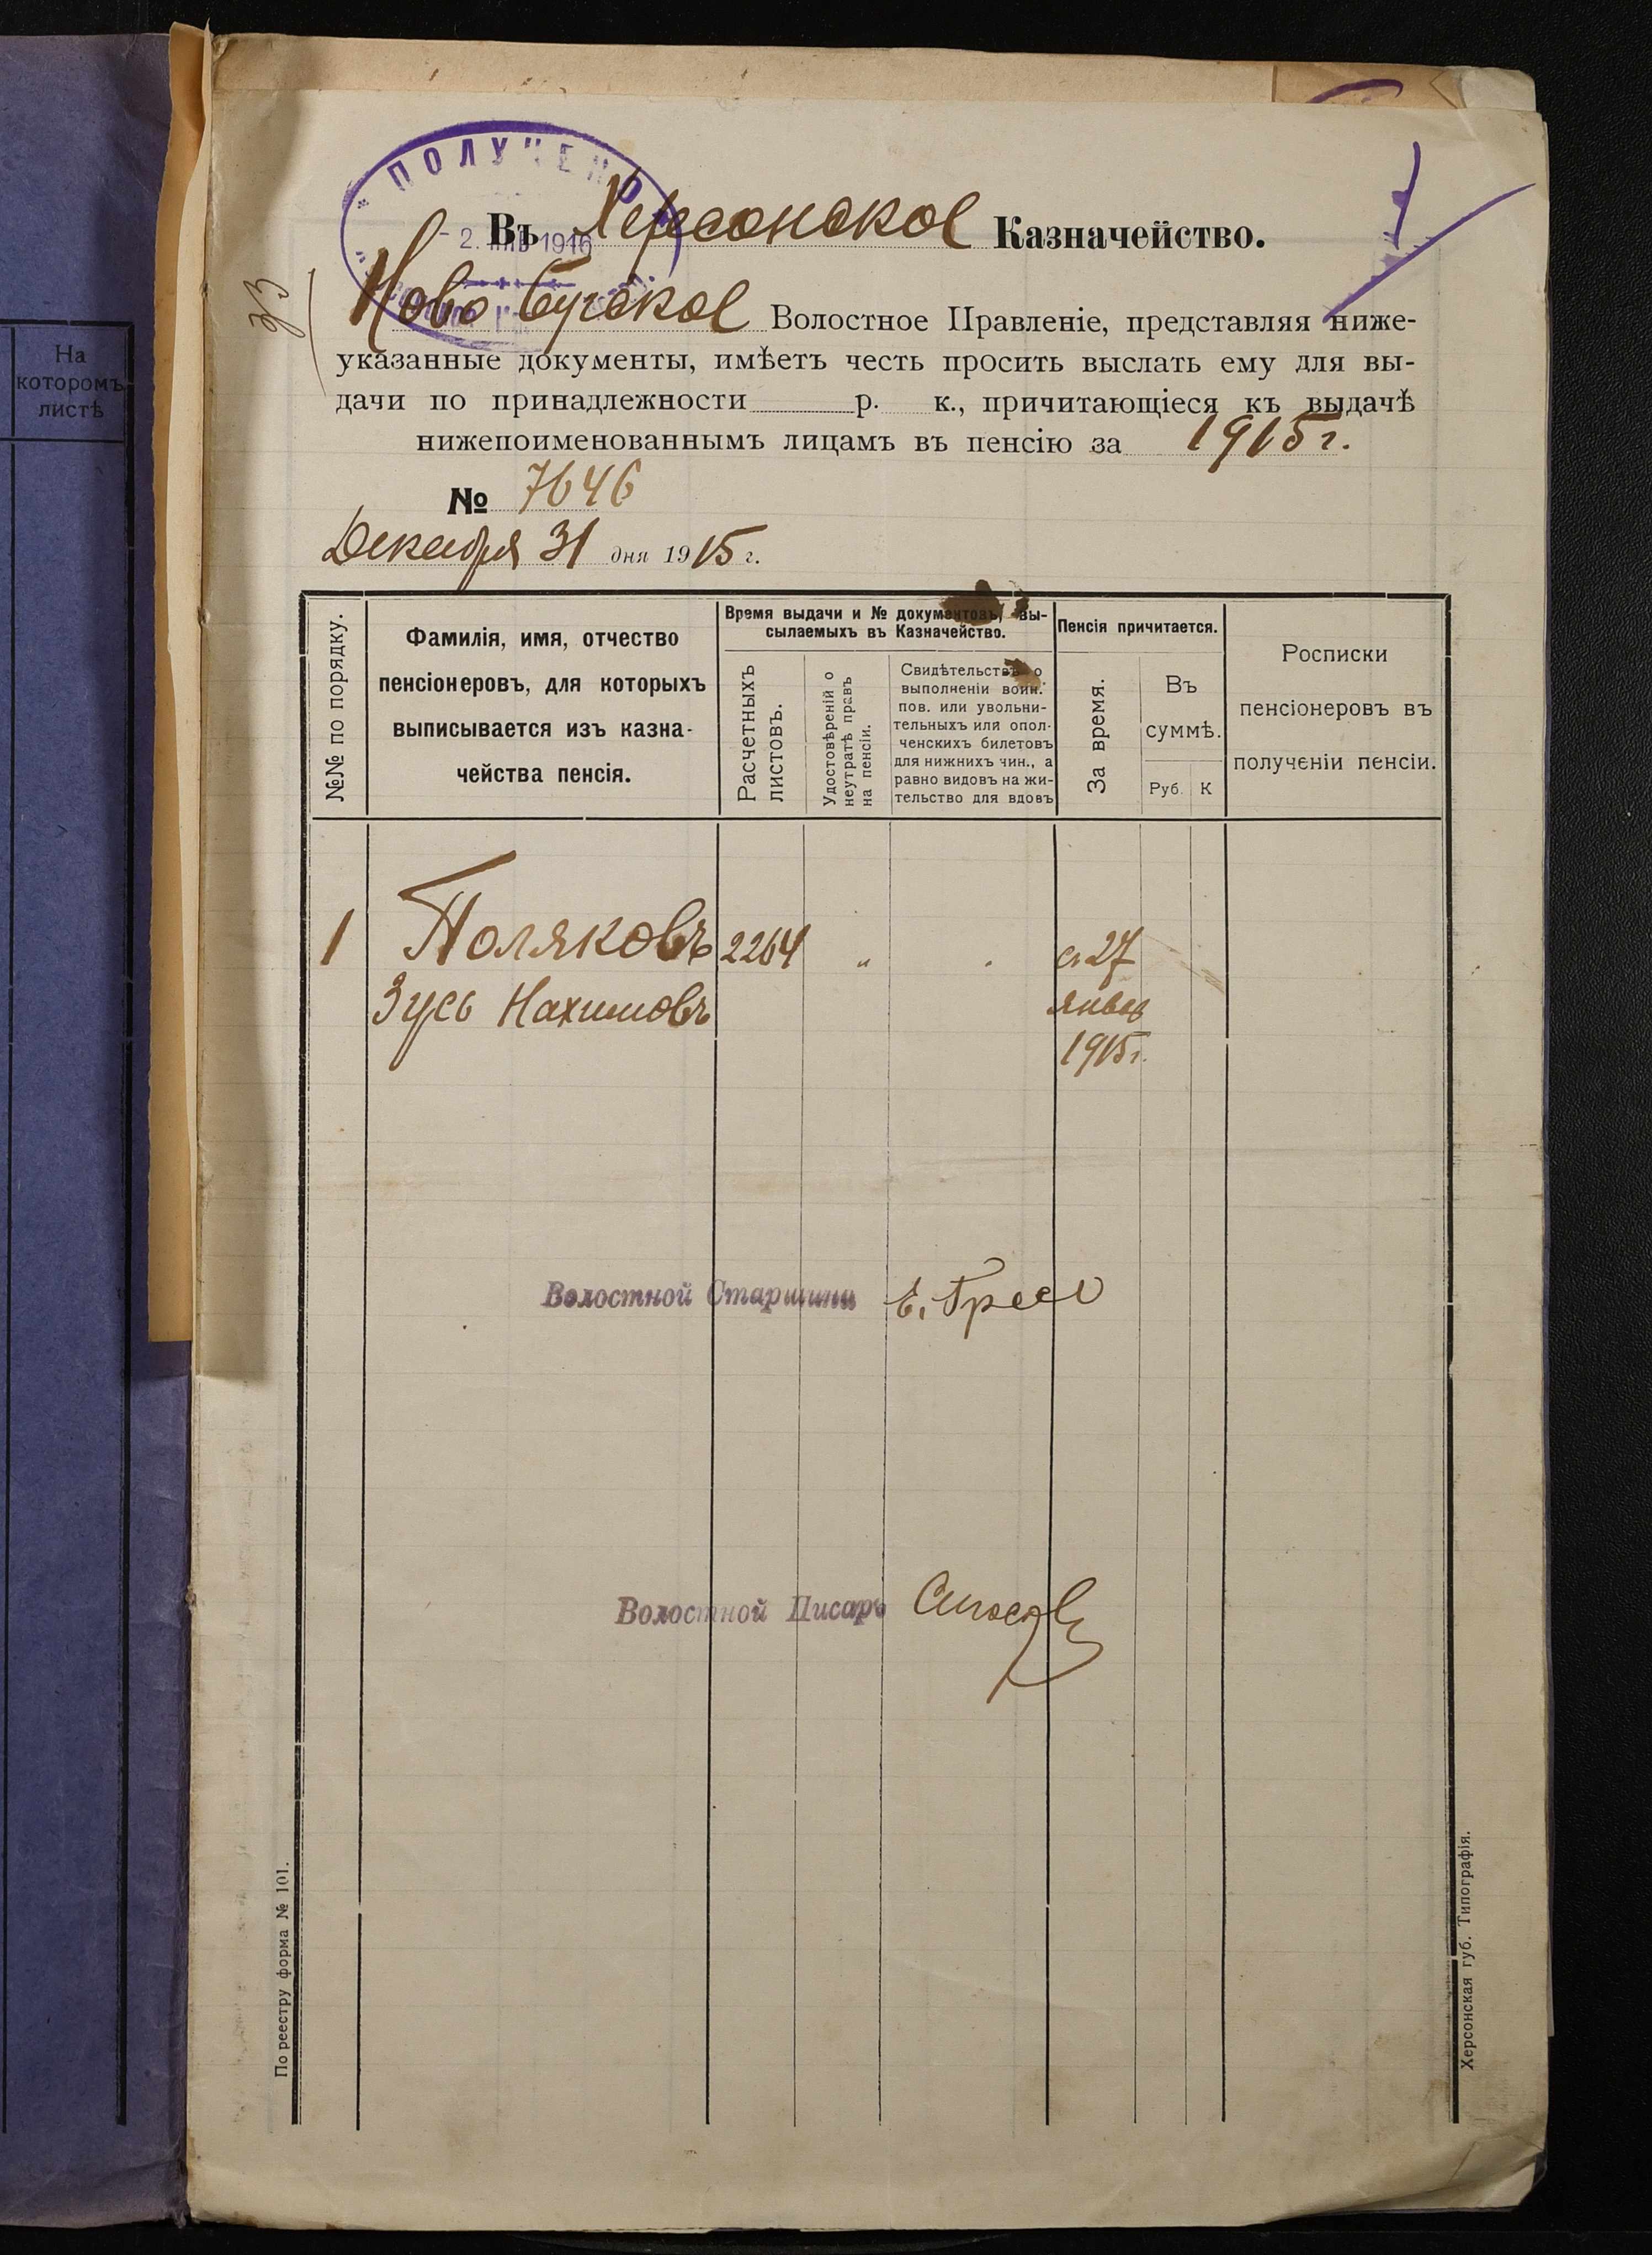 На
которомъ
листѣ
ПОЛУЧЕНО
- 2. ЯНВ 1916
Въ Херсонское Казначейство.
33
Ново Бугское Волостное Правленіе, представляя ниже-
указанные документы, имѣетъ честь просить выслать ему для вы-
дачи по принадлежности р. к., причитающіеся къ выдачѣ
нижепоименованнымъ лицамъ въ пенсію за 1915 г.
№ 7646
Декабря 31 дня 1915 г.
№№ по порядку.
Фамилія, имя, отчество
пенсіонеровъ, для которыхъ
выписывается изъ казна-
чейства пенсія.
Время выдачи и № документовъ, вы-
сылаемыхъ въ Казначейство.
Расчетныхъ
листовъ.
Удостовѣреній о
неутратѣ правъ
на пенсіи.
Свидѣтельствъ о
выполненіи воин.
пов. или увольни-
тельныхъ или опол-
ченскихъ билетовъ
для нижнихъ чин., а
равно видовъ на жи-
тельство для вдовъ
Пенсія причитается.
За время.
Въ
суммѣ.
Руб. К
Росписки
пенсіонеровъ въ
полученіи пенсіи.
1 Поляковъ 2264 " . съ 27
Зусь Нахимовъ января
1915 г.
Волостной Старшина Е. Гресь
Волостной Писарь
По реестру форма № 101.
Херсонская губ. Типографія.